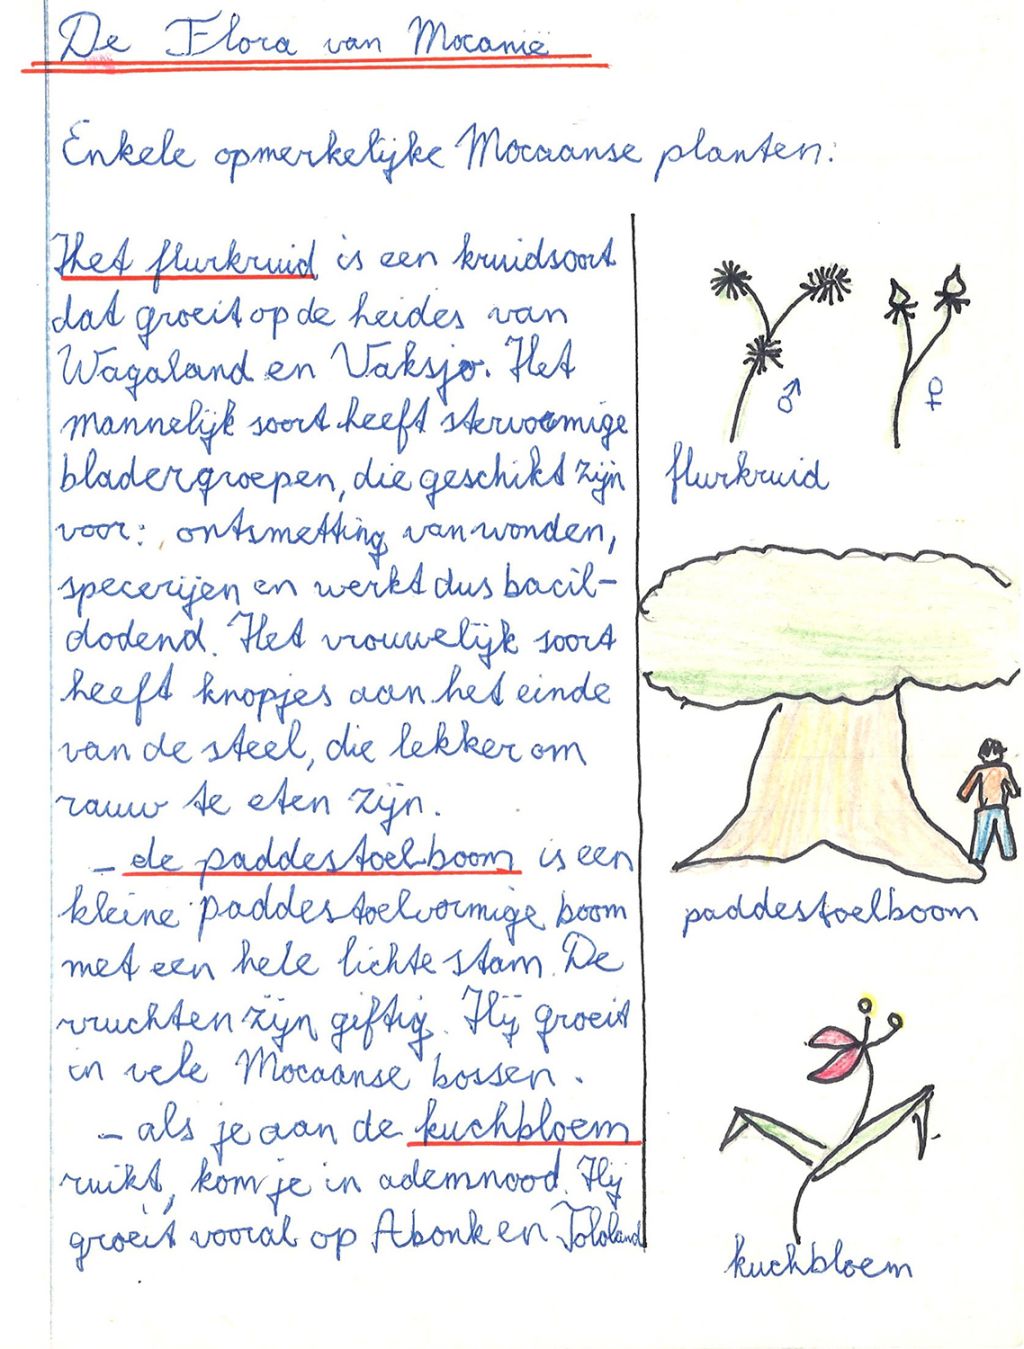 De Flora van Mocanië
Enkele opmerkelijke Mocaanse planten:
Het flurkruid is een kruidsoort
dat groeit op de heides van
Wagaland en Vaksjo. Het
mannelijk soort heeft stervormige
bladergroepen, die geschikt zijn
voor: ontsmetting van wonden,
specerijen en werkt dus bacil-
dodend. Het vrouwelijk soort
heeft knopjes aan het einde
van de steel, die lekker om
rauw te eten zijn.
- de paddestoelboom is een
kleine paddestoelvormige boom
met een hele lichte stam. De
vruchten zijn giftig. Hij groeit
in vele Mocaanse bossen.
- als je aan de kuchbloem
ruikt, kom je in ademnood. Hij
groeit vooral op Abonk en Tololand
♂
♀
flurkruid
paddestoelboom
kuchbloem